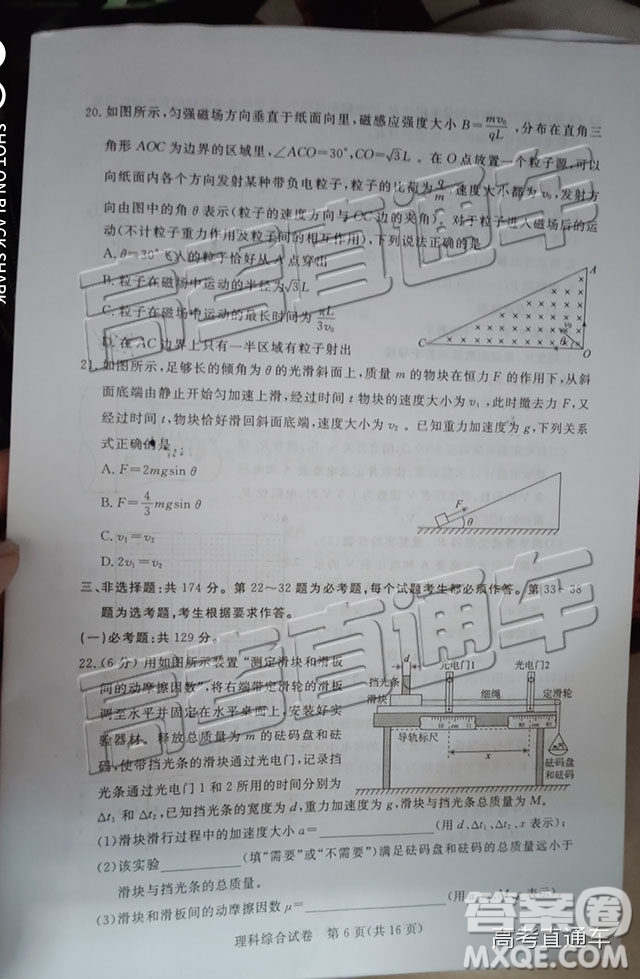 SHOT ON BLACK SHARK
20. 如图所示,匀强磁场方向垂直于纸面向里,磁感应强度大小 B=mv₀/qL ,分布在直角三
角形 AOC 为边界的区域里,∠ACO=30°,CO=√3L 。在 O 点放置一个粒子源,可以
向纸面内各个方向发射某种带负电粒子,粒子的比荷为 q/m ,速度大小都为 v₀,发射方
向由图中的角 θ 表示(粒子的速度方向与 OC 边的夹角)。对于粒子进入磁场后的运
动(不计粒子重力作用及粒子间的相互作用),下列说法正确的是
A. θ=30° 飞入的粒子恰好从 A 点穿出
B. 粒子在磁场中运动的半径为√3L
C. 粒子在磁场中运动的最长时间为 πL/3v₀
D. 在 AC 边界上只有一半区域有粒子射出
A
C
O
v₀
θ
21. 如图所示,足够长的倾角为 θ 的光滑斜面上,质量 m 的物块在恒力 F 的作用下,从斜
面底端由静止开始匀加速上滑,经过时间 t,物块的速度大小为 v₁ ,此时撤去力 F,又
经过时间 t,物块恰好滑回斜面底端,速度大小为 v₂ 。已知重力加速度为 g,下列关系
式正确的是
A. F=2mgsin θ
B. F=4/3 mgsin θ
C. v₁=v₂
D. 2v₁=v₂
F
θ
三、非选择题:共 174 分。第 22~32 题为必考题,每个试题考生都必须作答。第 33~38
题为选考题,考生根据要求作答。
(一)必考题:共 129 分。
22. (6 分) 用如图所示装置“测定滑块和滑板
间的动摩擦因数”,将右端带定滑轮的滑板
调至水平并固定在水平桌面上,安装好实
验器材。释放总质量为 m 的砝码盘和砝
码,使带挡光条的滑块通过光电门,记录挡
光条通过光电门 1 和 2 所用的时间分别为
Δt₁ 和 Δt₂,已知挡光条的宽度为 d,重力加速度为 g,滑块与挡光条总质量为 M。
d
光电门1
光电门2
挡光条
滑块
细绳
定滑轮
导轨标尺
x
砝码盘
和砝码
(1)滑块滑行过程中的加速度大小 a=________(用 d、Δt₁、Δt₂、x 表示);
(2)该实验________(填“需要”或“不需要”)满足砝码盘和砝码的总质量远小于
滑块与挡光条的总质量。
(3)滑块和滑板间的动摩擦因数 μ=________(用
理科综合试卷 第 6 页(共 16 页)
高考直通车
高考直通车
答案圈
高考直通车
MXQE.COM